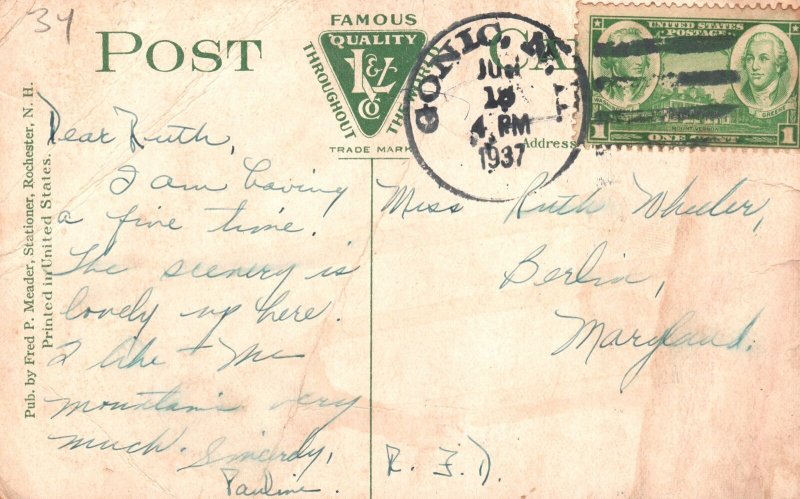 34
POST CA
FAMOUS
QUALITY
THROUGHOUT
THE WORLD
L&K
Co
TRADE MARK
GONIC, N.H.
JUN
4 PM
1937
UNITED STATES
POSTAGE
WASHINGTON
GREENE
MOUNT VERNON
1 ONE CENT 1
Address
Pub. by Fred P. Meader, Stationer, Rochester, N. H.
Printed in United States.
Dear Ruth,
I am having
a fine time.
The scenery is
lovely up here.
I like the
mountains very
much. Sincerely,
Pauline.
Miss Ruth Wheeler,
Berlin,
Maryland.
R. F. D.